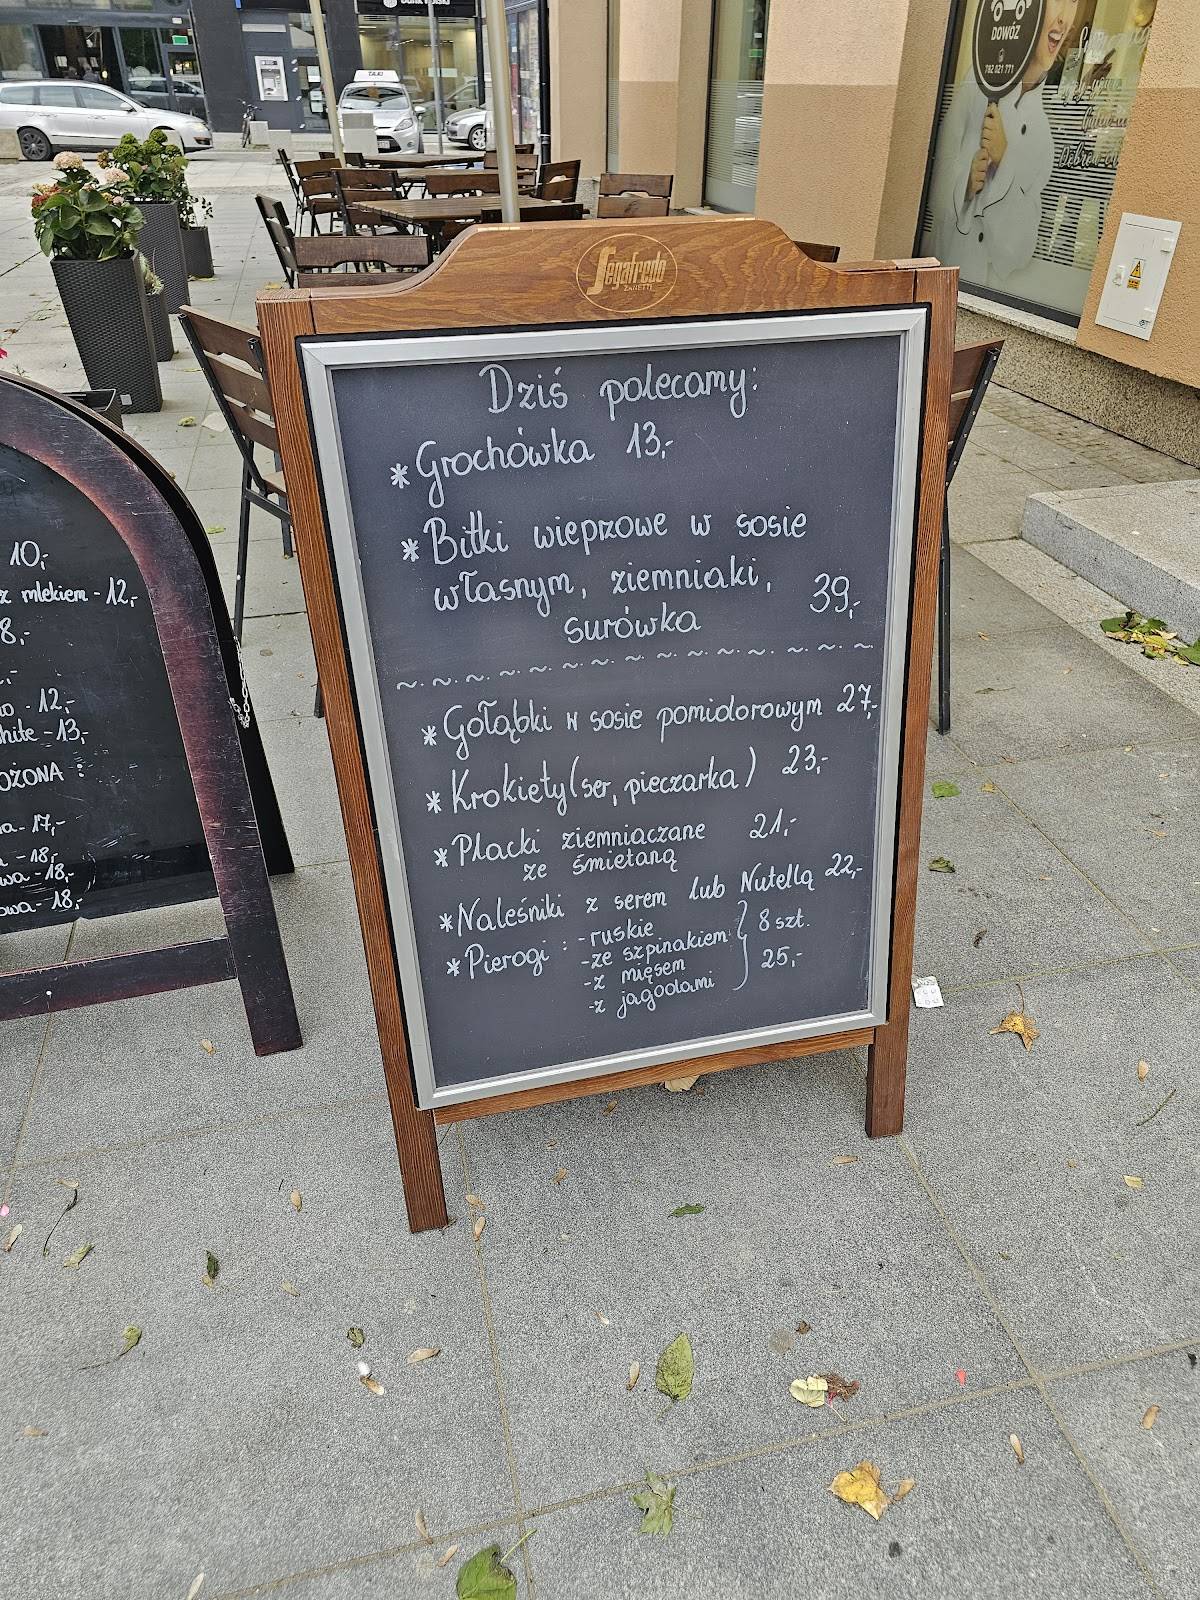 bank Polski
TAXI
DOWÓZ
782 021 771
Segafredo
ZANETTI
Dziś polecamy:
* Grochówka 13,-
* Bitki wieprzowe w sosie
własnym, ziemniaki,
surówka 39,-
~.~.~.~.~.~.~.~.~.~.~.~.~.~
* Gołąbki w sosie pomidorowym 27,-
* Krokiety (ser, pieczarka) 23,-
* Placki ziemniaczane 21,-
ze śmietaną
* Naleśniki z serem lub Nutellą 22,-
* Pierogi: - ruskie
- ze szpinakiem
- z mięsem
- z jagodami
8 szt.
25,-
10,-
z mlekiem - 12,-
8,-
- 12,-
hite - 13,-
OŻONA :
a - 17,-
- 18,-
wa - 18,-
owa - 18,-